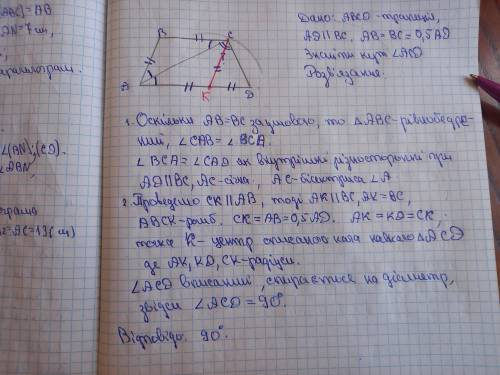 [ABC] = AB
AN = 7 см,
паралелограм.
∠(AN); (CD).
∠ABN,
= AC = 19 (см)
B
C
A
K
D
Дано: ABCD - трапеція,
AD || BC, AB = BC = 0,5 AD
Знайти кут ∠ACD
Розв'язання:
1. Оскільки AB = BC за умовою, то ΔABC - рівнобедре-
ний, ∠CAB = ∠BCA.
∠BCA = ∠CAD як внутрішні різносторонні при
AD || BC, AC - січна, AC - бісектриса ∠A.
2. Проведемо CK || AB, тоді AK || BC, AK = BC,
ABCK - ромб. CK = AB = 0,5 AD. AK = KD = CK,
точка K - центр описаного кола навколо ΔACD
де AK, KD, CK - радіуси.
∠ACD вписаний, спирається на діаметр,
звідси ∠ACD = 90°.
Відповідь: 90°.